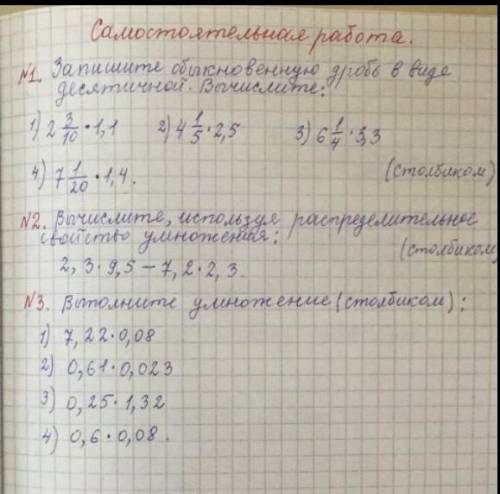 Самостоятельная работа.
№1. Запишите обыкновенную дробь в виде
десятичной. Вычислите:
1) 2 3/10 · 1,1 2) 4 1/5 · 2,5 3) 6 1/4 · 3,3
4) 7 1/20 · 1,4. (столбиком)
№2. Вычислите, используя распределительное
свойство умножения: (столбиком)
2,3 · 9,5 – 7,2 · 2,3.
№3. Выполните умножение (столбиком):
1) 7,22 · 0,08
2) 0,61 · 0,023
3) 0,25 · 1,32
4) 0,6 · 0,08.